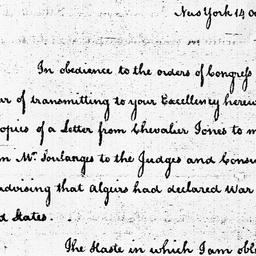 New York 14 Oc
In obedience to the orders of Congress
ur of transmitting to your Excellency herew
opies of a Letter from Chevalier Jones to m
m Mr. Soulanges to the Judges and Consu
advising that Algiers had declared War
d States.
The Haste in which I am obl